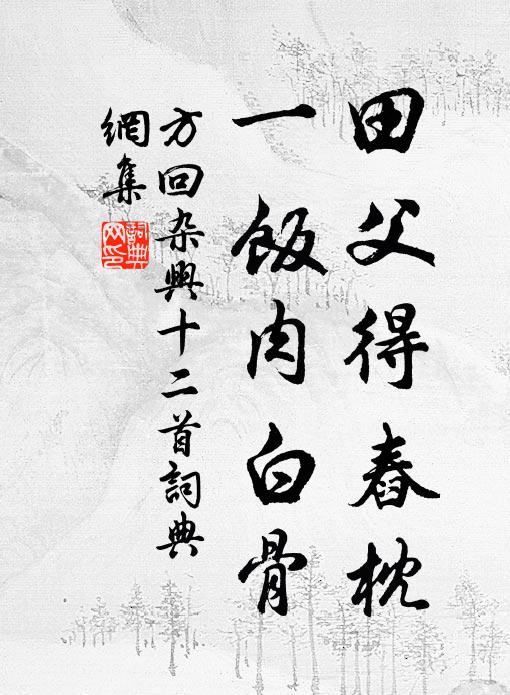 田父得舂枕
一飯肉白骨
方回杂興十二首詞典
網集
詞典网印